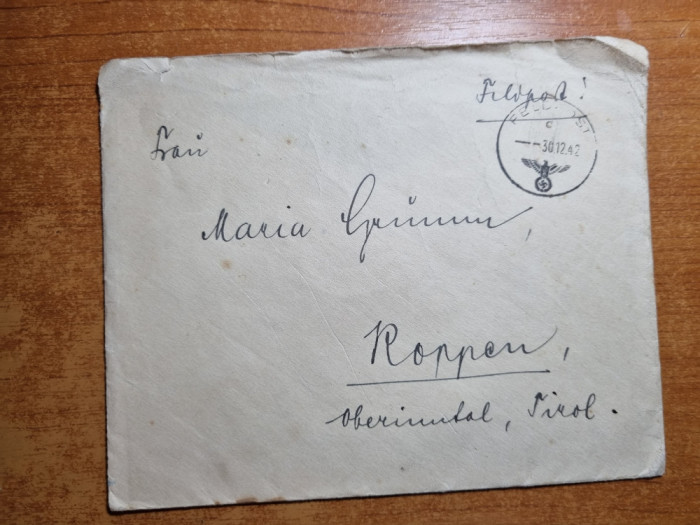 Feldpost!
FELDPOST
c
--30.12.42
Frau
Maria Grümm,
Roppen,
Oberinntal, Tirol.